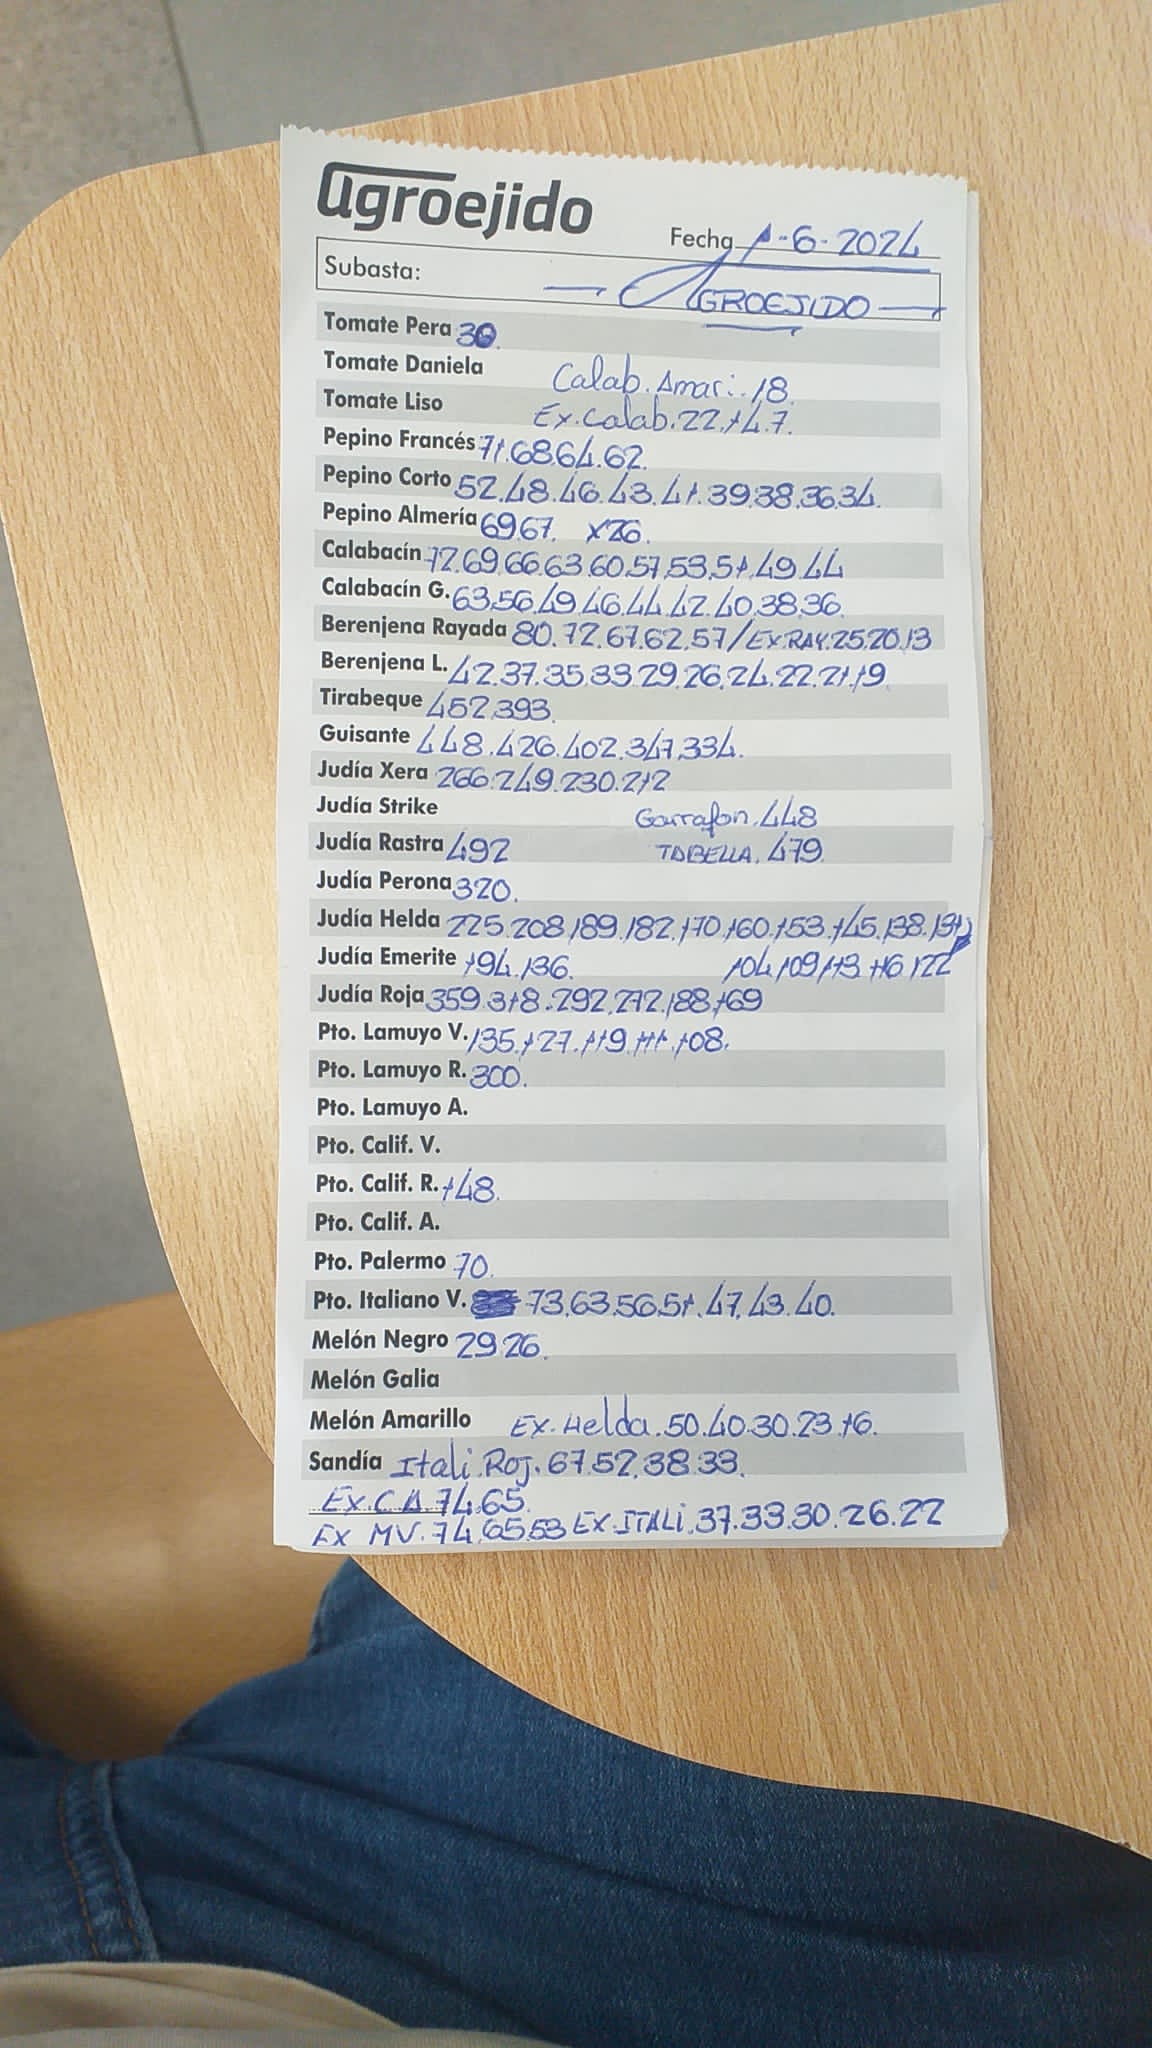 agroejido
Fecha 1-6-2024
Subasta: — AGROEJIDO —
Tomate Pera 30.
Tomate Daniela Calab. Amari. 18.
Tomate Liso Ex. Calab. 22. 14. 7.
Pepino Francés 71. 68. 64. 62.
Pepino Corto 52. 48. 46. 43. 41. 39. 38. 36. 34.
Pepino Almería 69. 67. x26.
Calabacín 72. 69. 66. 63. 60. 57. 53. 51. 49. 44
Calabacín G. 63. 56. 49. 46. 44. 42. 40. 38. 36.
Berenjena Rayada 80. 72. 67. 62. 57 / EX. RAY. 25. 20. 13
Berenjena L. 42. 37. 35. 33. 29. 26. 24. 22. 21. 19.
Tirabeque 452. 393.
Guisante 448. 426. 402. 347. 334.
Judía Xera 266. 249. 230. 212
Judía Strike Garrafon. 448
Judía Rastra 492 TABELLA. 479
Judía Perona 320.
Judía Helda 225. 208. 189. 182. 170. 160. 153. 145. 138. 131
Judía Emerite 194. 136. 104. 109. 113. 116. 122
Judía Roja 359. 318. 292. 272. 188. 169
Pto. Lamuyo V. 135. 127. 119. 111. 108.
Pto. Lamuyo R. 300.
Pto. Lamuyo A.
Pto. Calif. V.
Pto. Calif. R. 148.
Pto. Calif. A.
Pto. Palermo 70.
Pto. Italiano V. 73. 63. 56. 51. 47. 43. 40.
Melón Negro 29. 26.
Melón Galia
Melón Amarillo EX. Helda. 50. 40. 30. 23. 16.
Sandía Itali. Roj. 67. 52. 38. 33.
EX. CA. 74. 65.
EX MV. 74. 65. 53 EX. ITALI. 37. 33. 30. 26. 22